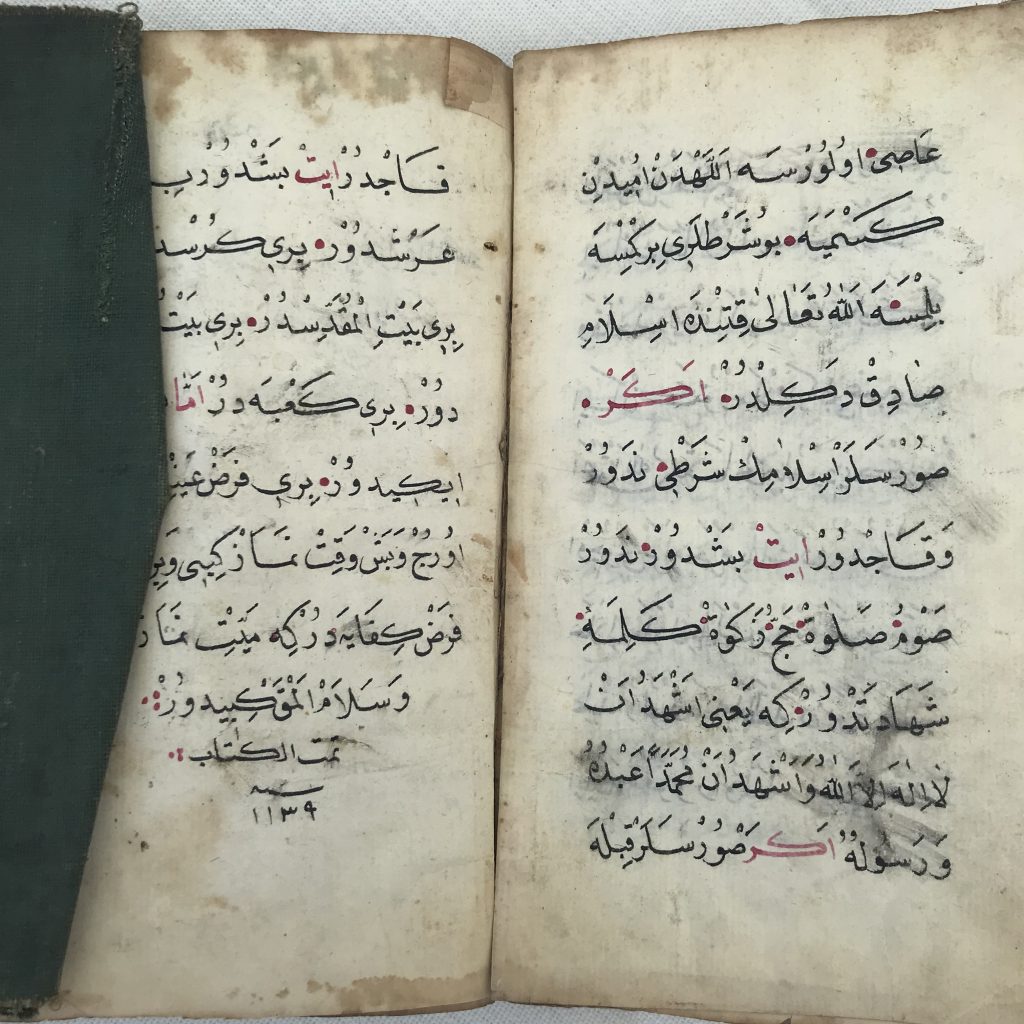 عَاصِی اولُورْسَه اَللّٰهْدَنْ اُمِیدِنْ
كَسْمَیَه بو شَرْطلَرِی بِركِمْسَه
بِلْمَسَه اَللّٰهُ تَعَالیٰ قَتِنْدَه اِسْلَامِ
صَادِقْ دَكِلْدُرْ اَكَرْ
صُورْسَلَرْ اِسْلَامِكْ شَرَطِی نَدُورْ
وَقَاجْدُورْ اَیِتْ بَشْدُورْ نَدُورْ
صَوْمُ صَلٰوةْ حَجّْ زَكٰوةْ كَلِمَهٔ
شَهَادَتْدُورْ كِه یَعْنِی اَشْهَدُ اَنْ
لَا اِلٰهَ اِلَّا اللّٰهُ وَاَشْهَدُ اَنْ مُحَمَّدًا عَبْدُهُ
وَرَسُولُهُ اَكَرْ صُورْسَلَرْ قِبْلَه
قَاجْدُرْ اَیِتْ بَشْدُورْ بِرِ
عَرَشْدُورْ بِرِی كُرْسِ
بِرِی بَیْتِ الْمُقَدَّسْدُرْ بِرِی بَیْتُ
دُورْ بِرِی كَعْبَه دُرْ اَمَّا
ایكیدُورْ بِرِی فَرْضِ عَیْن
اُورُجْ وَبَشْ وَقِتْ نَمَازْ كِیبِی وَبِرِ
فَرْضِ كِفَایَه دُرْ كِه مَیِّتْ نَمَازِ
وَسَلَامْ اَلْمَقْ كِیبِیدُورْ
تمت الكتاب
سنه
۱۱۳۹